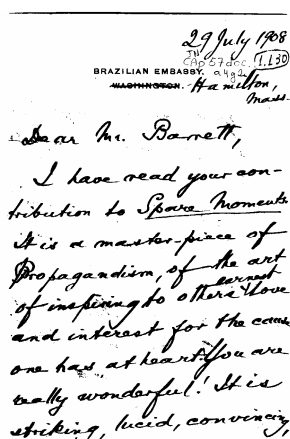 29 July 1908
JN
CAp 57 doc. 1.130
a4g2
BRAZILIAN EMBASSY.
WASHINGTON. Hamilton,
Mass.
Dear Mr. Barrett,
I have read your con-
tribution to Spare Moments.
It is a master-piece of
Propagandism, of the art
of inspiring to others earnest love
and interest for the cause
one has at heart. You are
really wonderful! It is
striking, lucid, convincing,